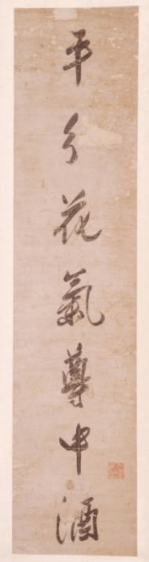 平分花氣尊中酒